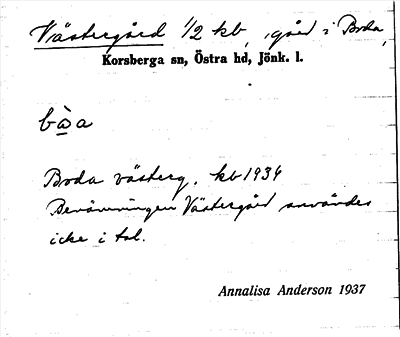 Västergård 1/2 kb, gård i Boda,
Korsberga sn, Östra hd, Jönk. l.
bo̱a
Boda västerg. kb 1934
Benämningen Västergård användes
icke i tal.
Annalisa Anderson 1937